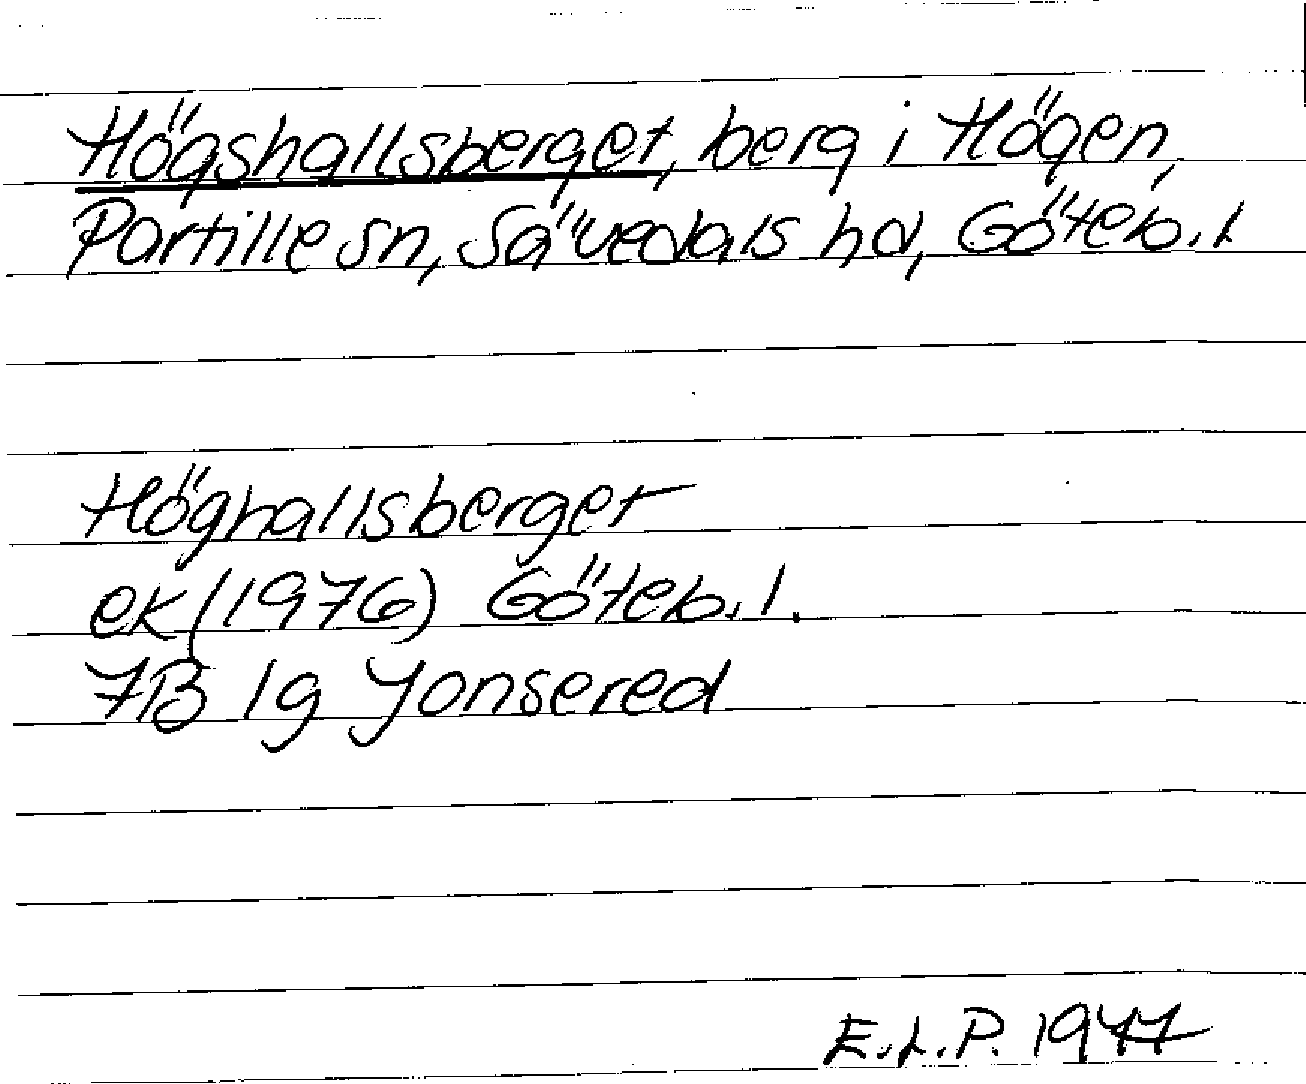 Högshallsberget, berg i Högen,
Partille sn, Sävedals hd, Göteb. l
Höghallsberget
ek (1976) Göteb. l.
7B 1g Jonsered
E.L.P. 1977